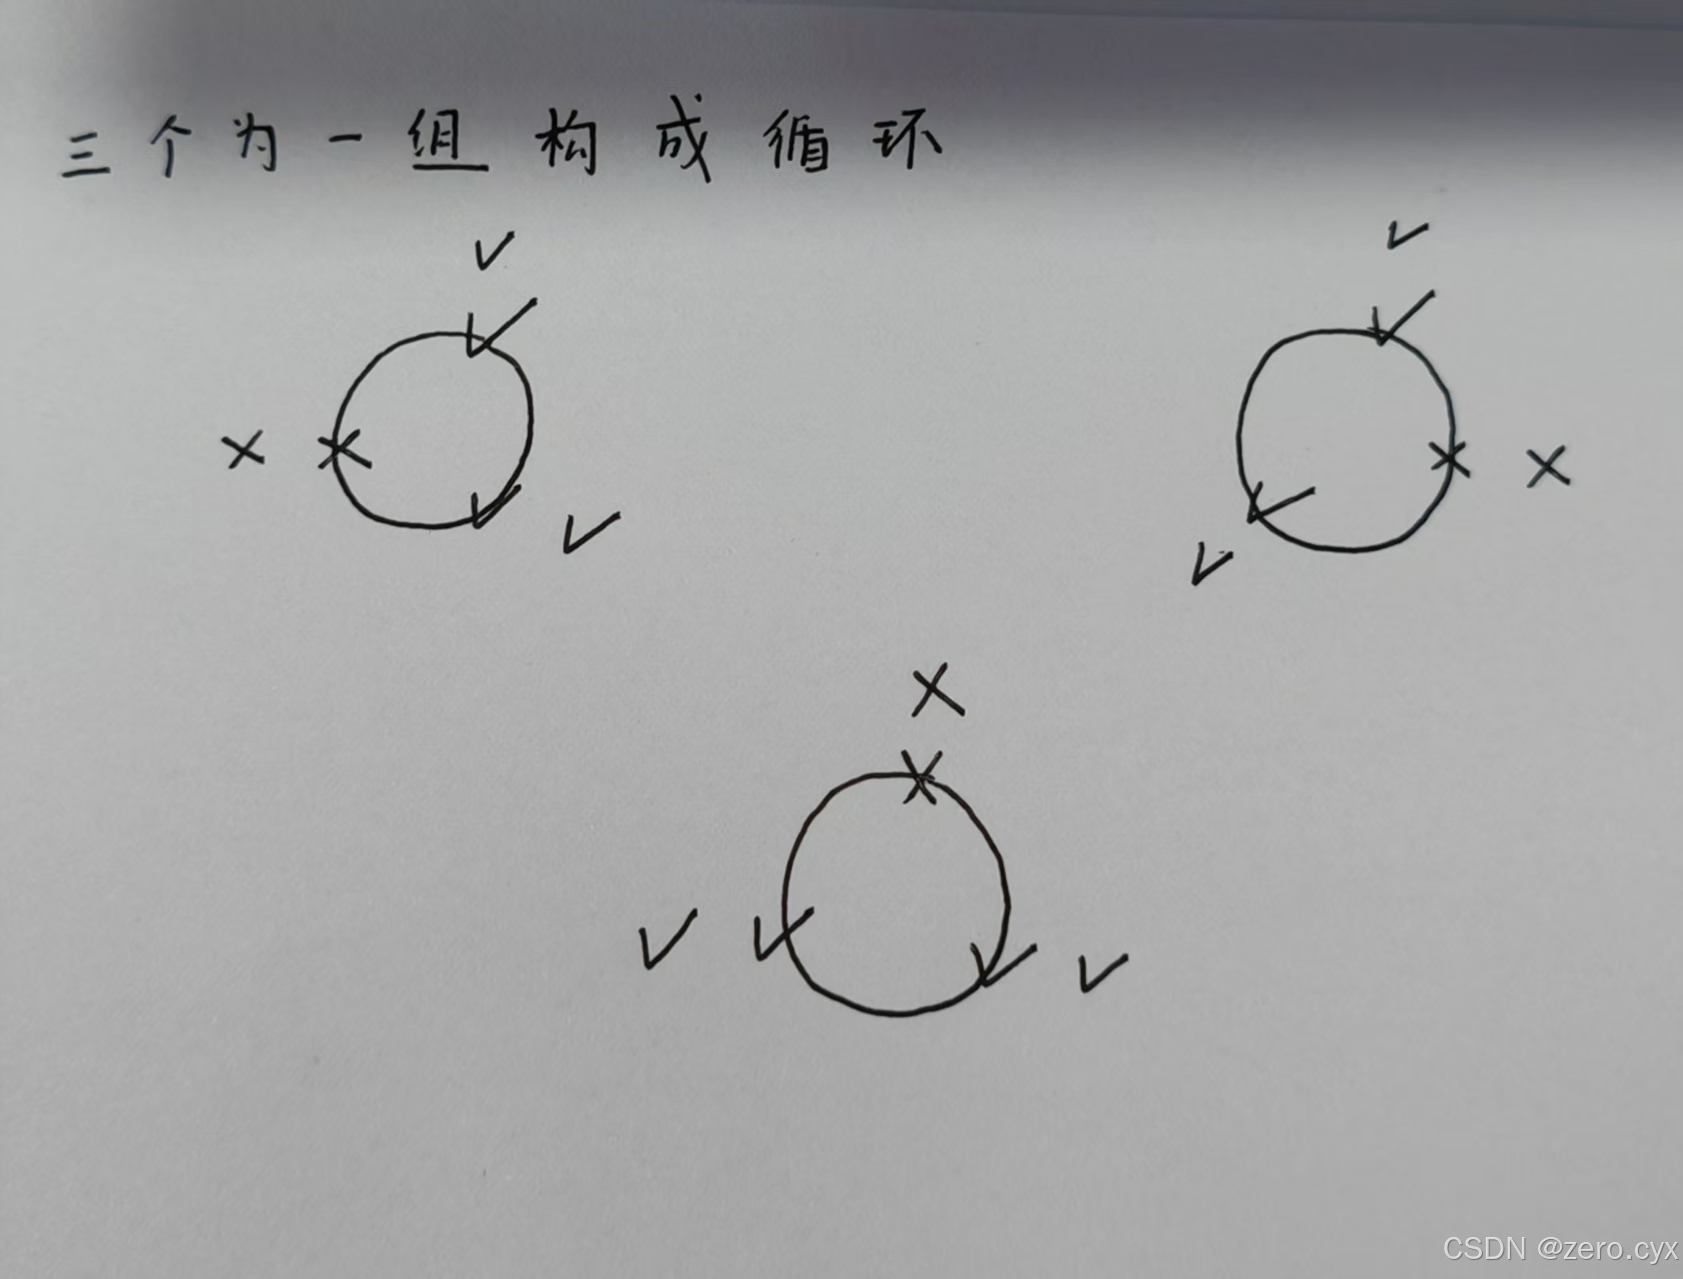 三个为一组构成循环
✓
✓
✓
✓
×
×
×
×
✓
✓
✓
✓
×
×
✓
✓
✓
✓
CSDN @zero.cyx